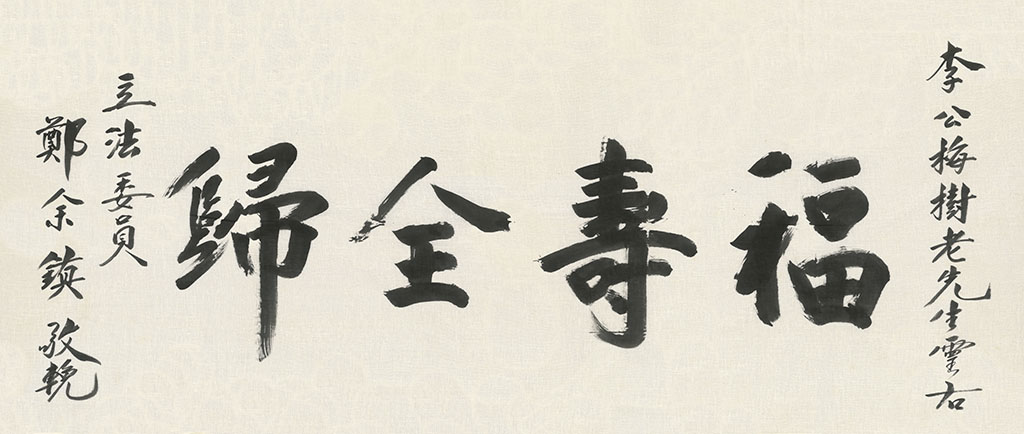 李公梅樹老先生靈右
福壽全歸
立法委員
鄭余鎮敬輓